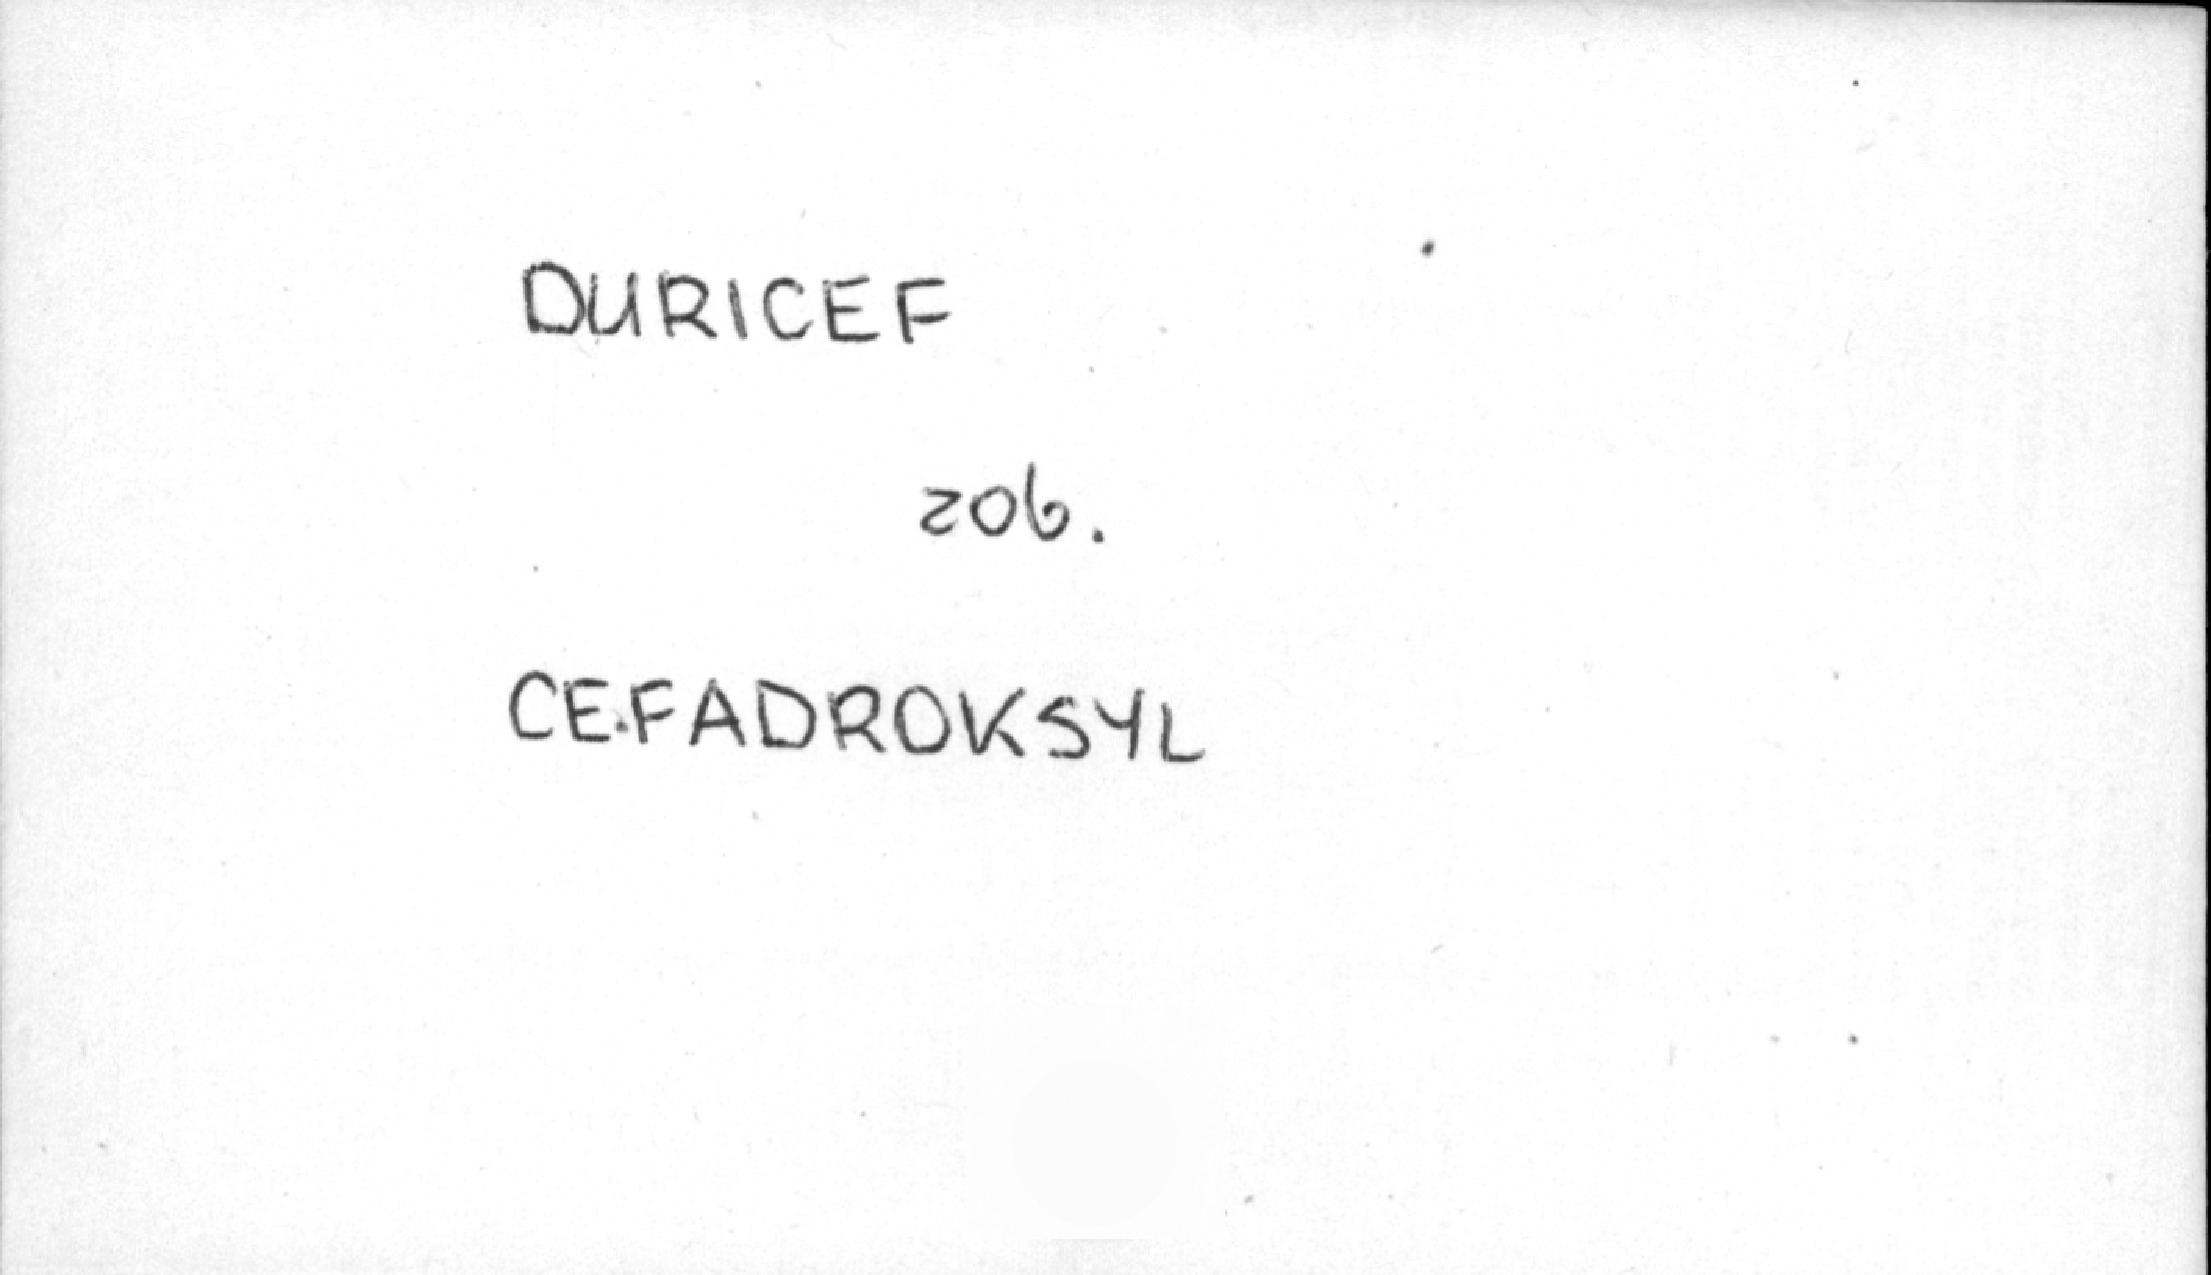 DURICEF
zob.
CEFADROKSYL